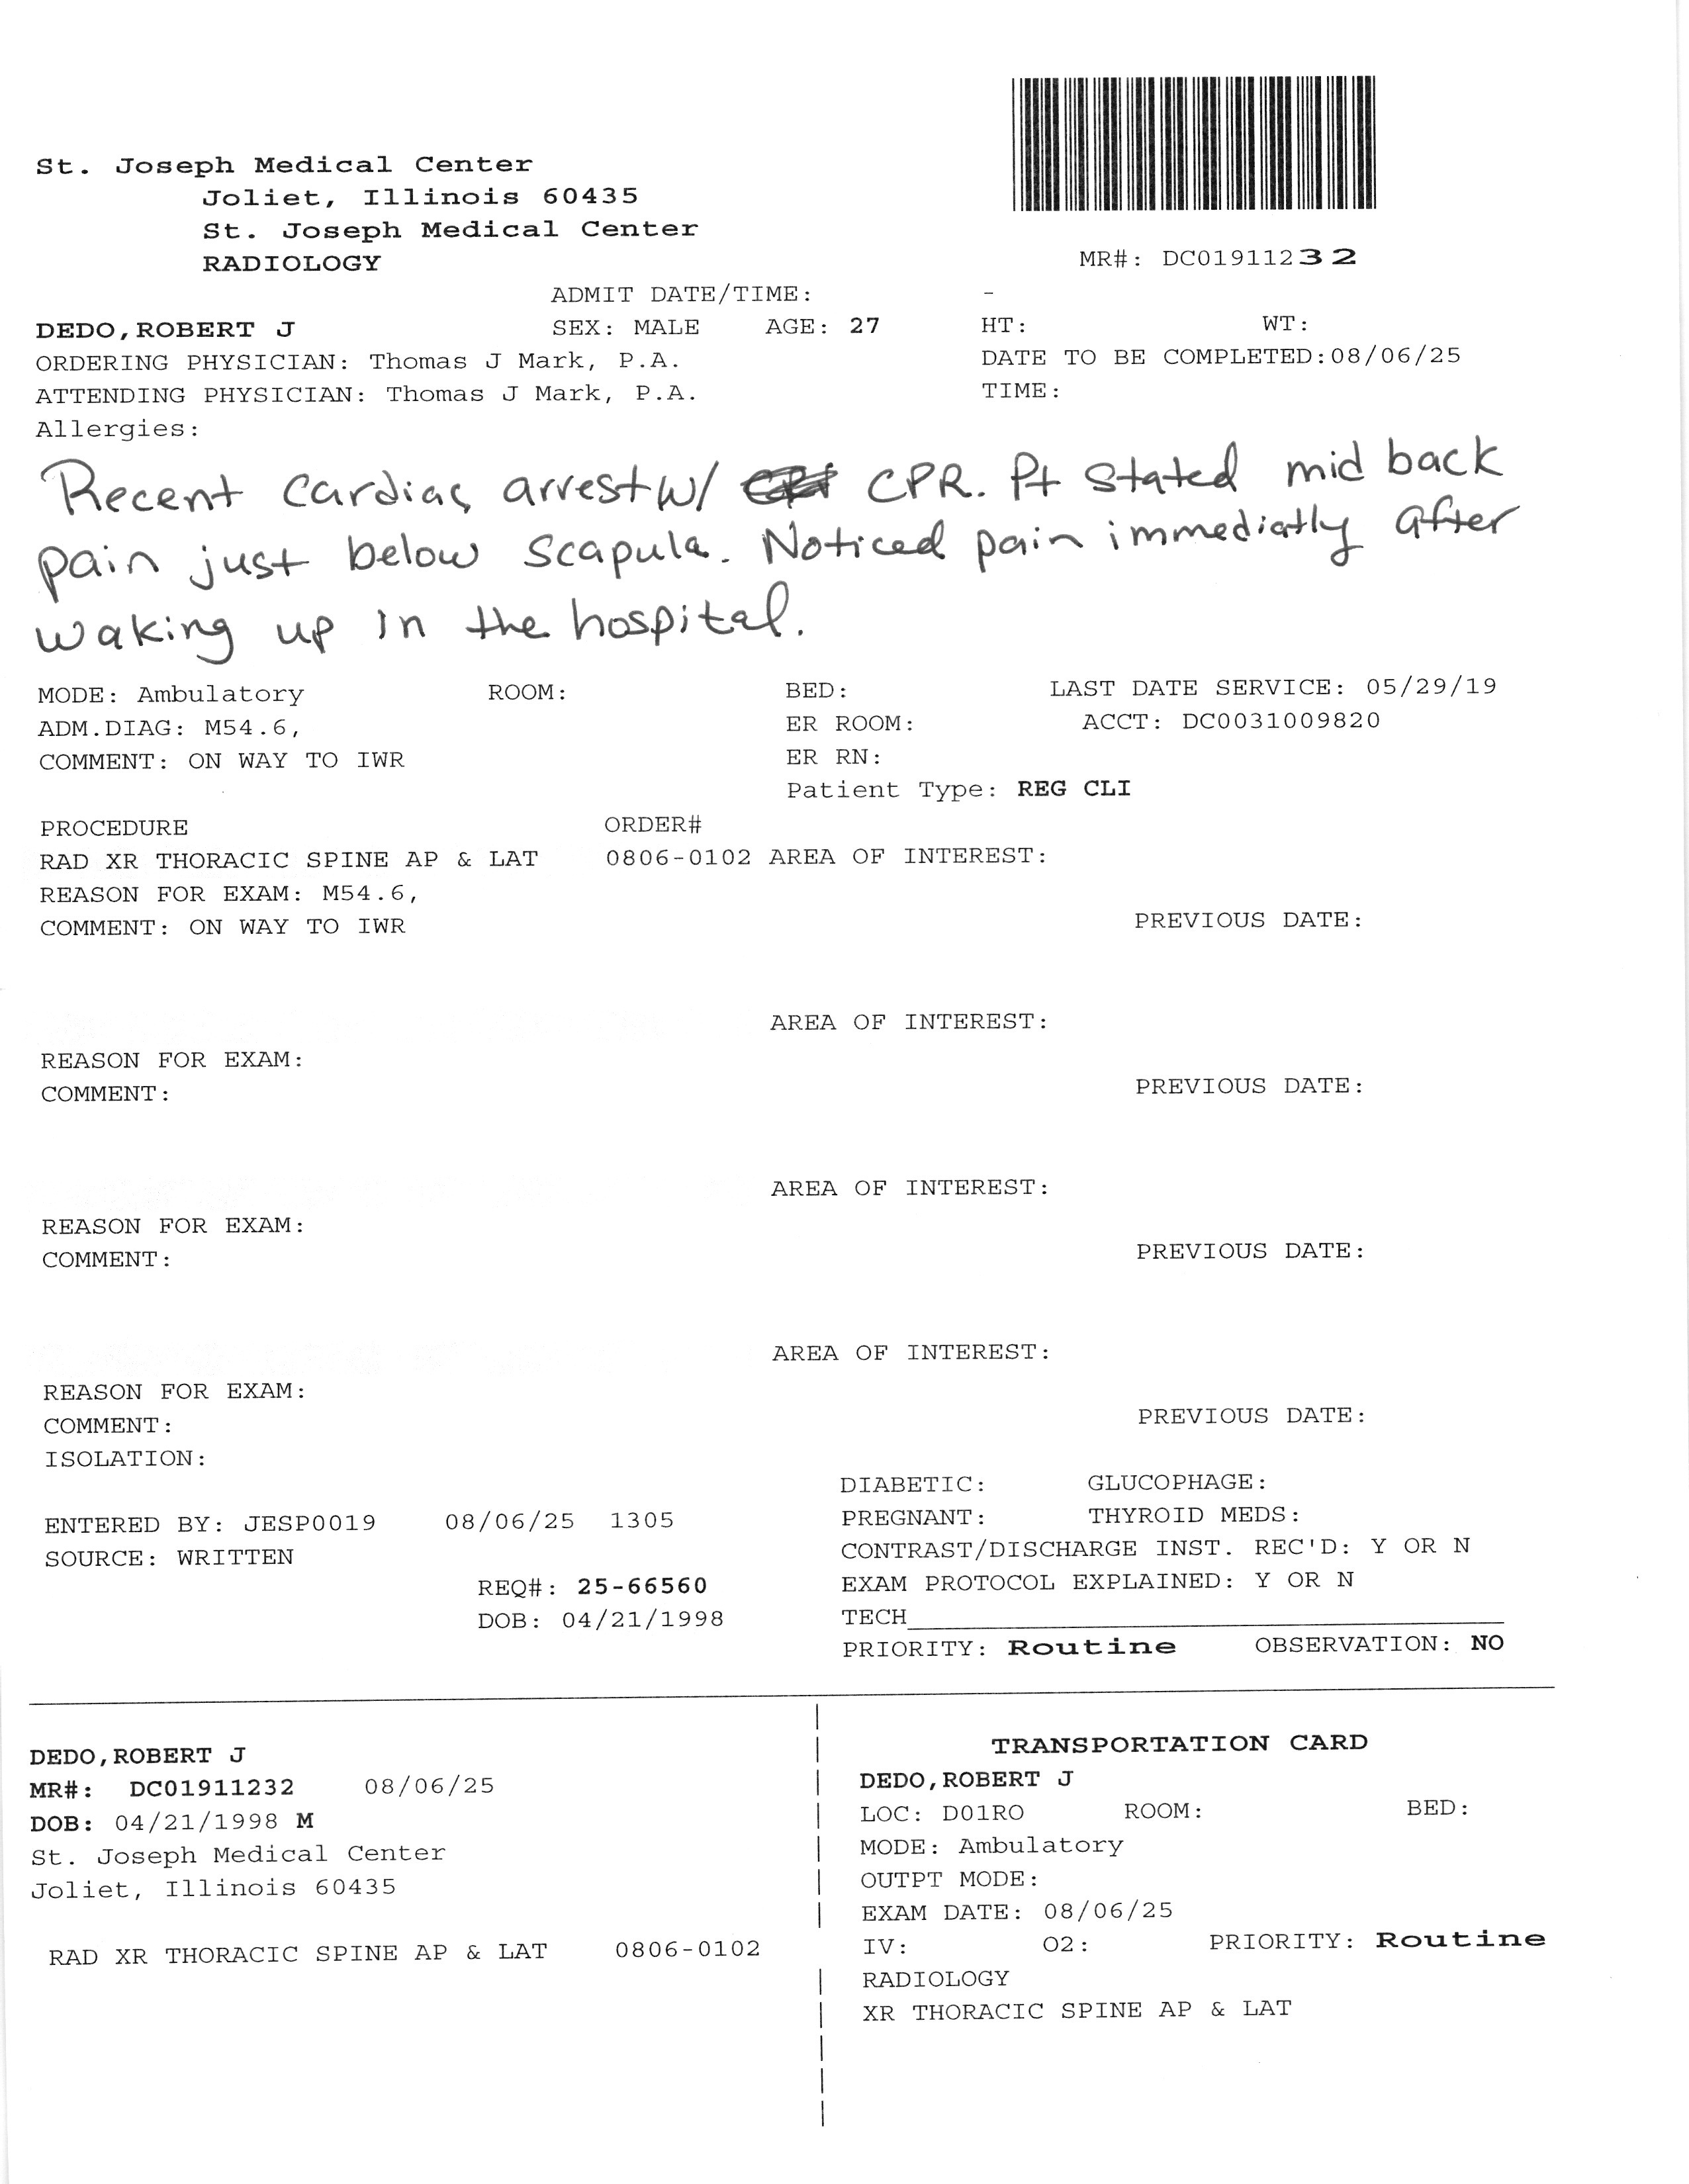 St. Joseph Medical Center
Joliet, Illinois 60435
St. Joseph Medical Center
RADIOLOGY
MR#: DC01911232
ADMIT DATE/TIME: -
DEDO,ROBERT J SEX: MALE AGE: 27 HT: WT:
ORDERING PHYSICIAN: Thomas J Mark, P.A. DATE TO BE COMPLETED:08/06/25
ATTENDING PHYSICIAN: Thomas J Mark, P.A. TIME:
Allergies:
Recent cardiac arrest w/ CPR. Pt stated mid back
pain just below scapula. Noticed pain immediatly after
waking up in the hospital.
MODE: Ambulatory ROOM: BED: LAST DATE SERVICE: 05/29/19
ADM.DIAG: M54.6, ER ROOM: ACCT: DC0031009820
COMMENT: ON WAY TO IWR ER RN:
Patient Type: REG CLI
PROCEDURE ORDER#
RAD XR THORACIC SPINE AP & LAT 0806-0102 AREA OF INTEREST:
REASON FOR EXAM: M54.6,
COMMENT: ON WAY TO IWR PREVIOUS DATE:
AREA OF INTEREST:
REASON FOR EXAM:
COMMENT: PREVIOUS DATE:
AREA OF INTEREST:
REASON FOR EXAM:
COMMENT: PREVIOUS DATE:
AREA OF INTEREST:
REASON FOR EXAM:
COMMENT: PREVIOUS DATE:
ISOLATION:
DIABETIC: GLUCOPHAGE:
ENTERED BY: JESP0019 08/06/25 1305 PREGNANT: THYROID MEDS:
SOURCE: WRITTEN CONTRAST/DISCHARGE INST. REC'D: Y OR N
REQ#: 25-66560 EXAM PROTOCOL EXPLAINED: Y OR N
DOB: 04/21/1998 TECH
PRIORITY: Routine OBSERVATION: NO
DEDO,ROBERT J
MR#: DC01911232 08/06/25
DOB: 04/21/1998 M
St. Joseph Medical Center
Joliet, Illinois 60435
RAD XR THORACIC SPINE AP & LAT 0806-0102
TRANSPORTATION CARD
DEDO,ROBERT J
LOC: D01RO ROOM: BED:
MODE: Ambulatory
OUTPT MODE:
EXAM DATE: 08/06/25
IV: O2: PRIORITY: Routine
RADIOLOGY
XR THORACIC SPINE AP & LAT